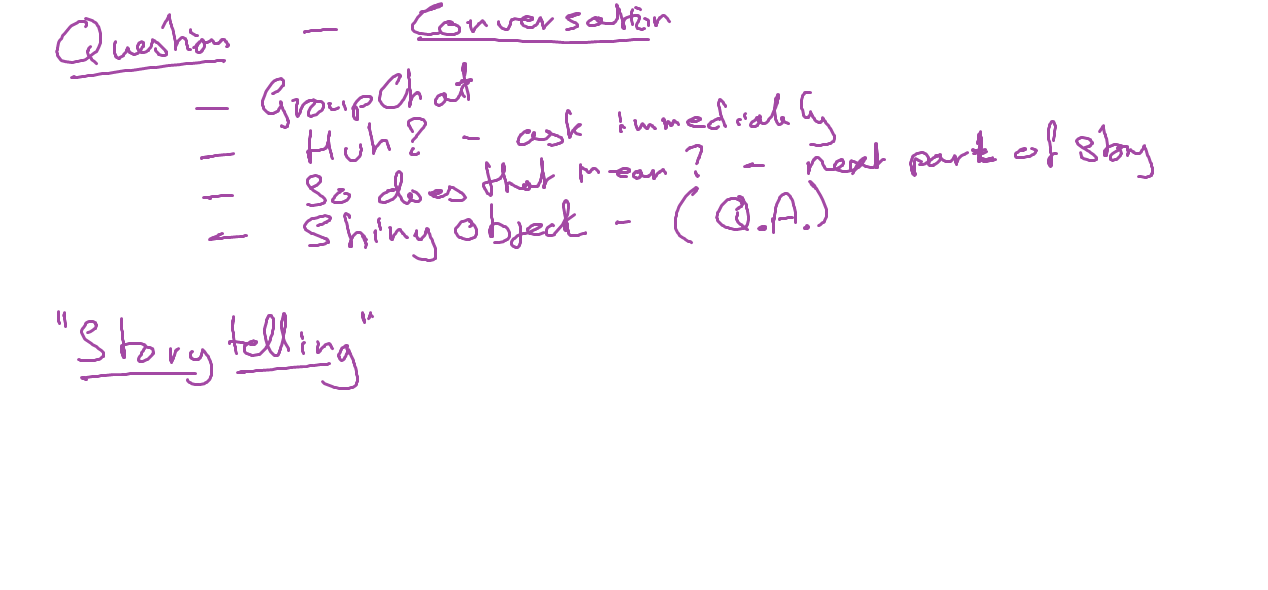 Question - Conversation
- GroupChat
- Huh? - ask immediately
- So does that mean? - next part of story
- Shiny object - (Q.A.)
"Story telling"